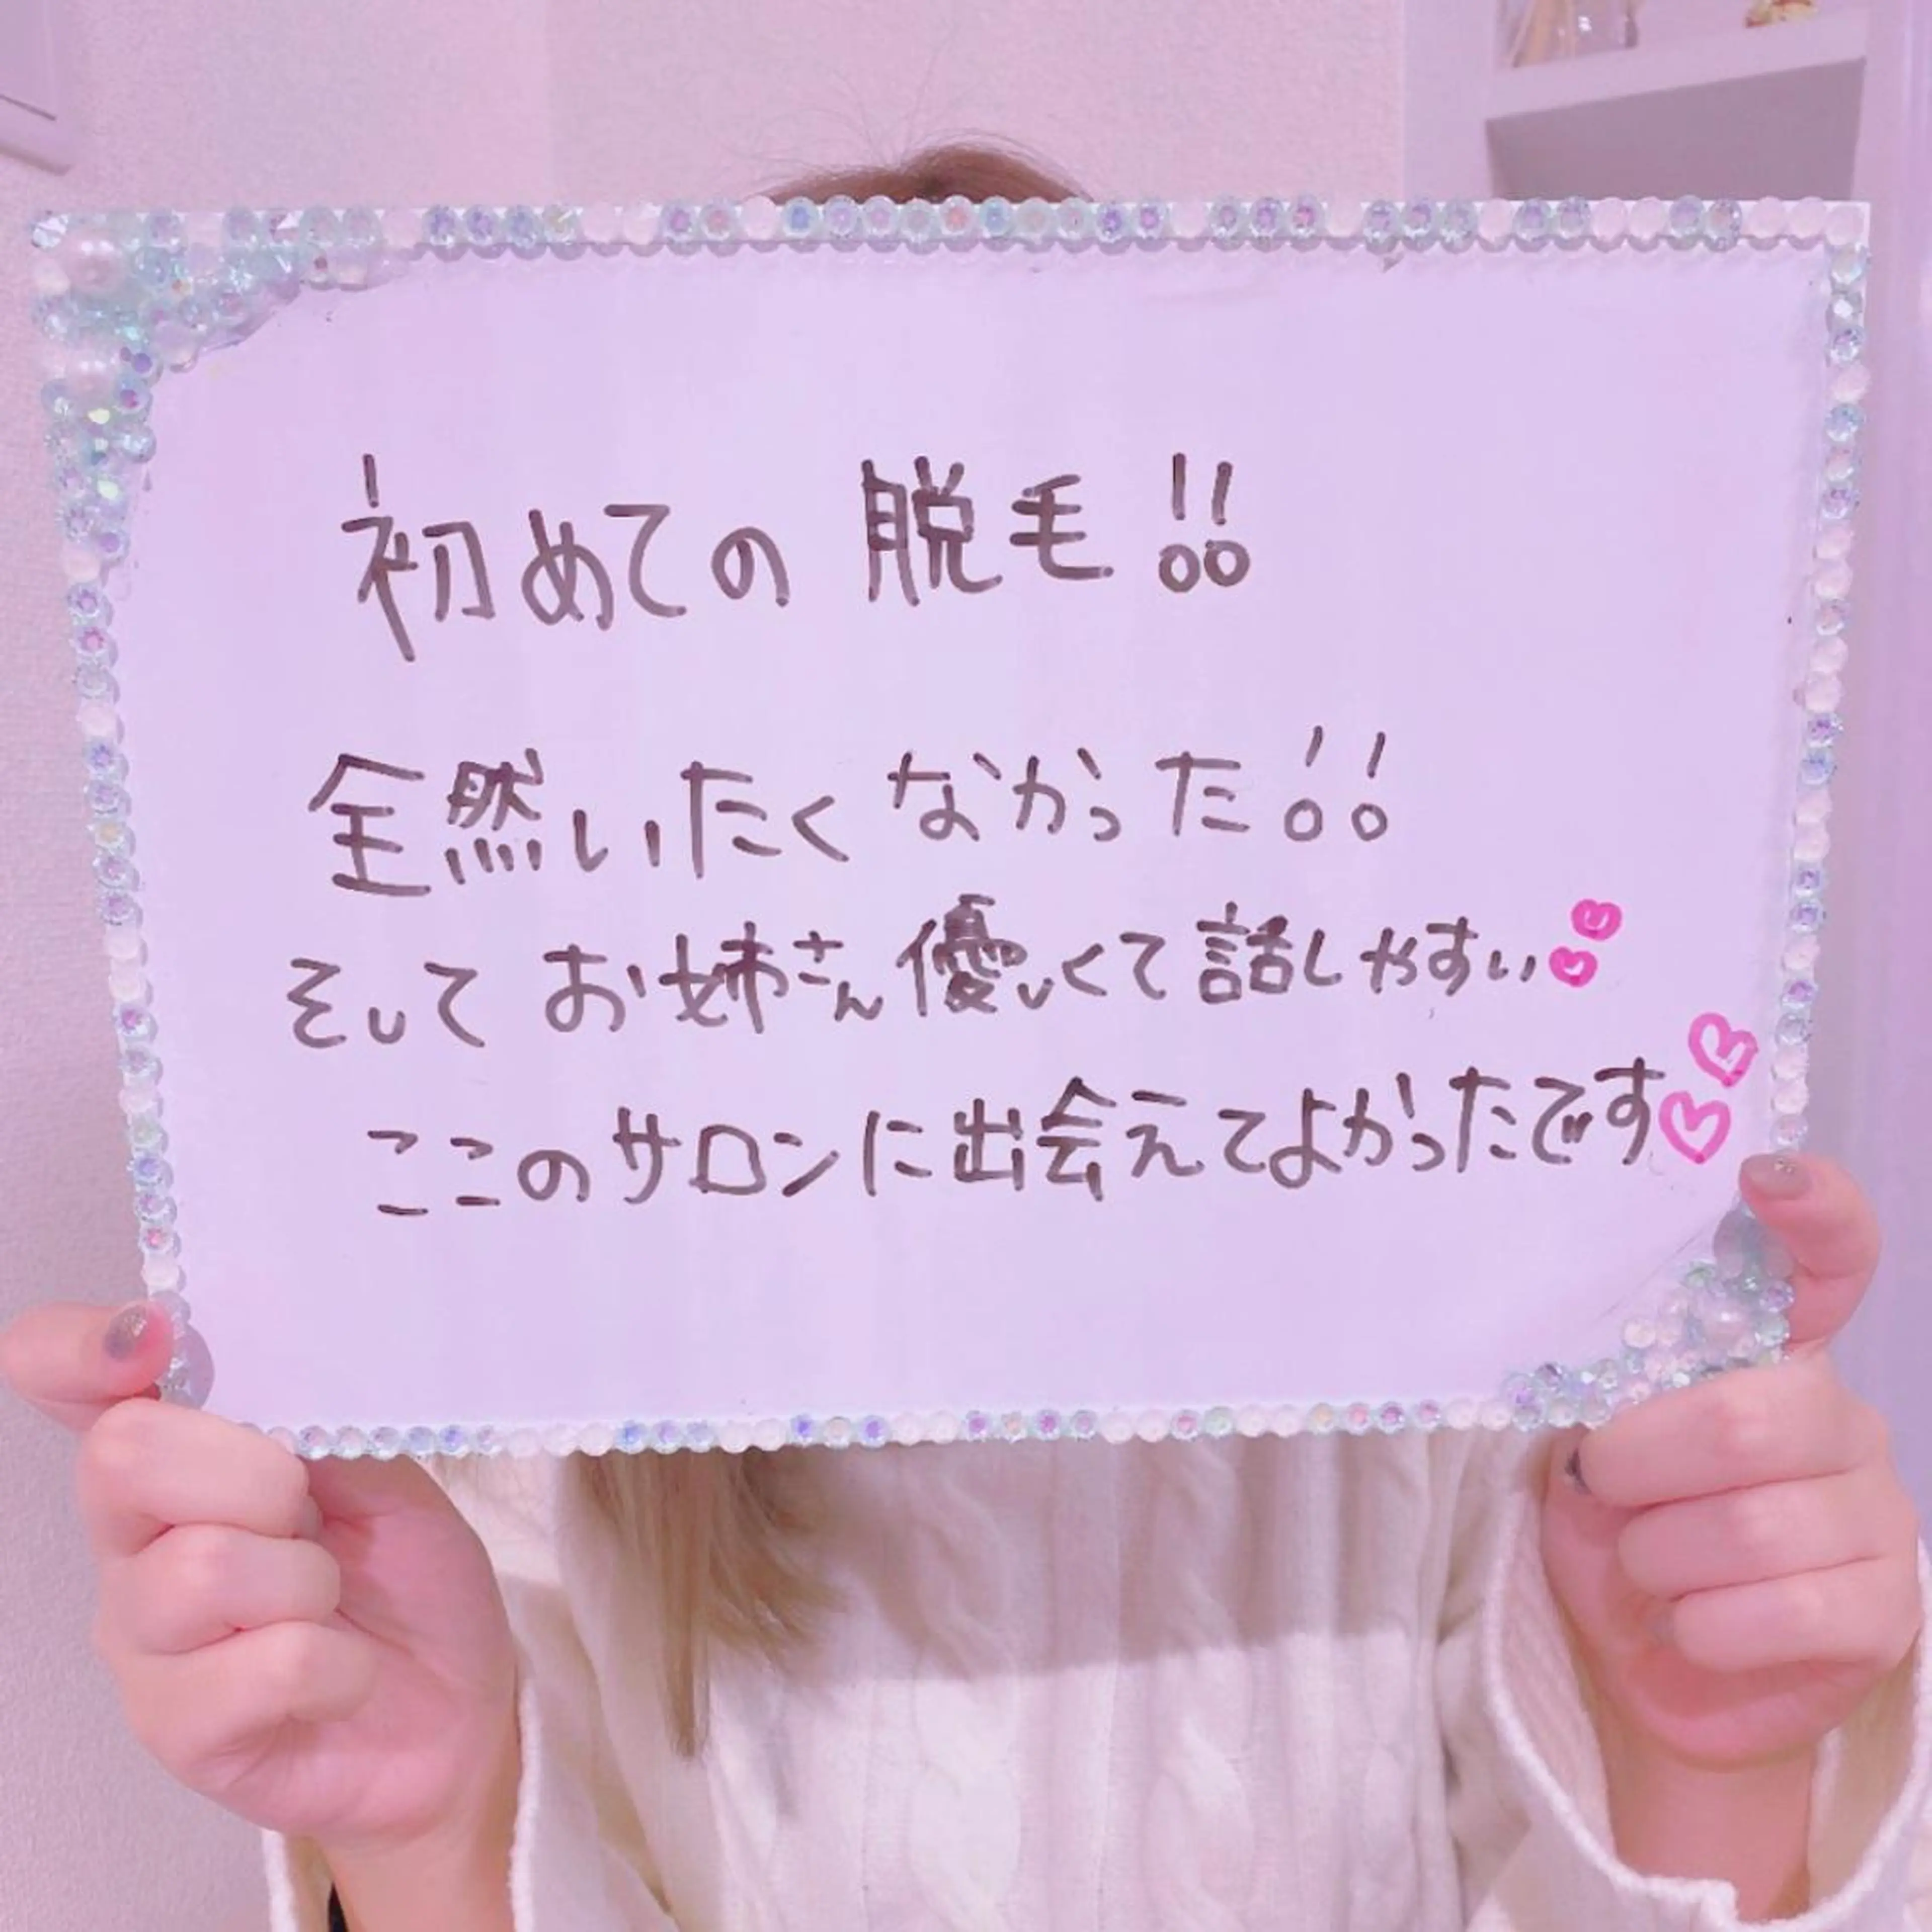 初めての脱毛!!
全然いたくなかった!!
そしてお姉さん優しくて話しやすい♡♡
ここのサロンに出会えてよかったです♡♡